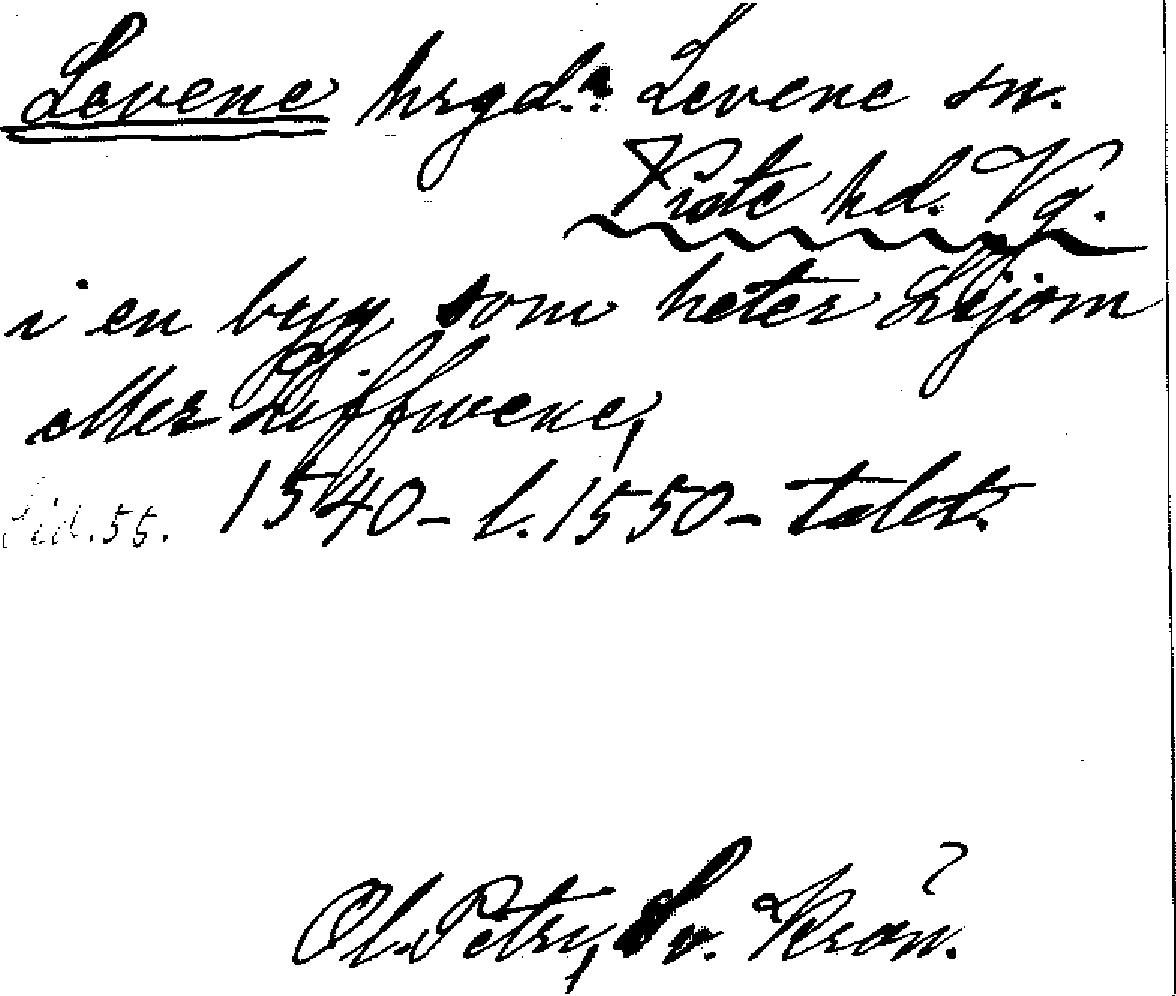 Levene hrgd. Levene sn.
Viste hd. Vg.
i en byy som heter Lijom
eller Liffwene,
Sid. 55. 1540- l. 1550- talet.
Ol. Petry, Sv. Krön.